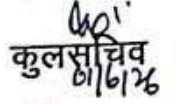 कुलसचिव
01/6/26